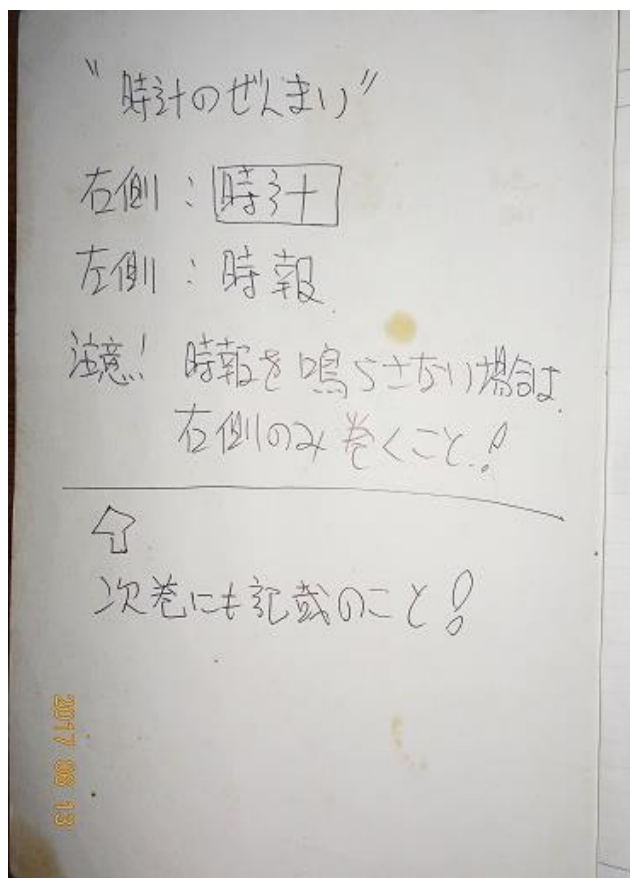 〝時計のぜんまい〟
右側：時計
左側：時報
注意！ 時報を鳴らさない場合は
右側のみ巻くこと！
次巻にも記載のこと！
2017 06 13